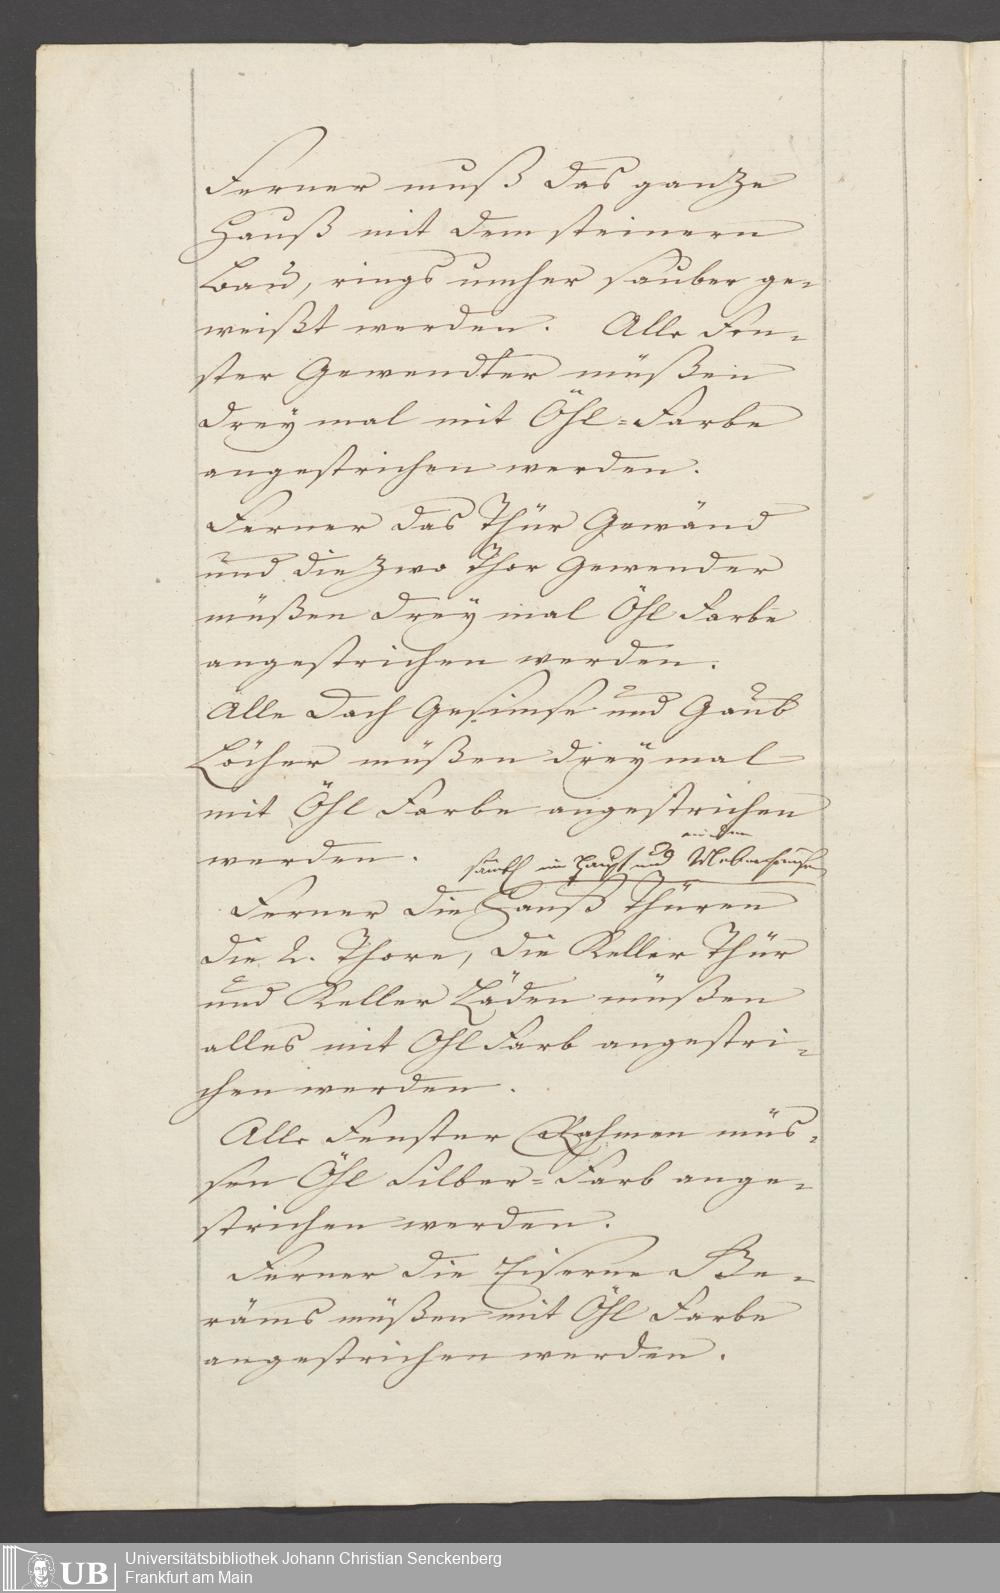 Ferner muß das ganze
Hauß mit dem steinern
Bau, rings umher sauber ge-
weißt werden. Alle Fen-
ster Gewendter müßen
drey mal mit Öhl=Farbe
angestrichen werden.
Ferner das Thür Gewänd
und die zwo Thor Gewender
müßen drey mal Öhl Farbe
angestrichen werden.
Alle Dach Gesimse und Gaub
Löcher müßen drey mal
mit Öhl Farbe angestrichen
werden.
im Hauß und Nebenhauße
Ferner die Hauß Thüren
die 2. Thore, die Keller Thür
und Keller Läden müßen
alles mit Öhl Farb angestri-
chen werden.
Alle Fenster Rahmen müs-
sen Öhl Silber=Farb ange-
strichen werden.
Ferner die Eiserne Be-
räms müßen mit Öhl Farbe
angestrichen werden.
UB
Universitätsbibliothek Johann Christian Senckenberg
Frankfurt am Main